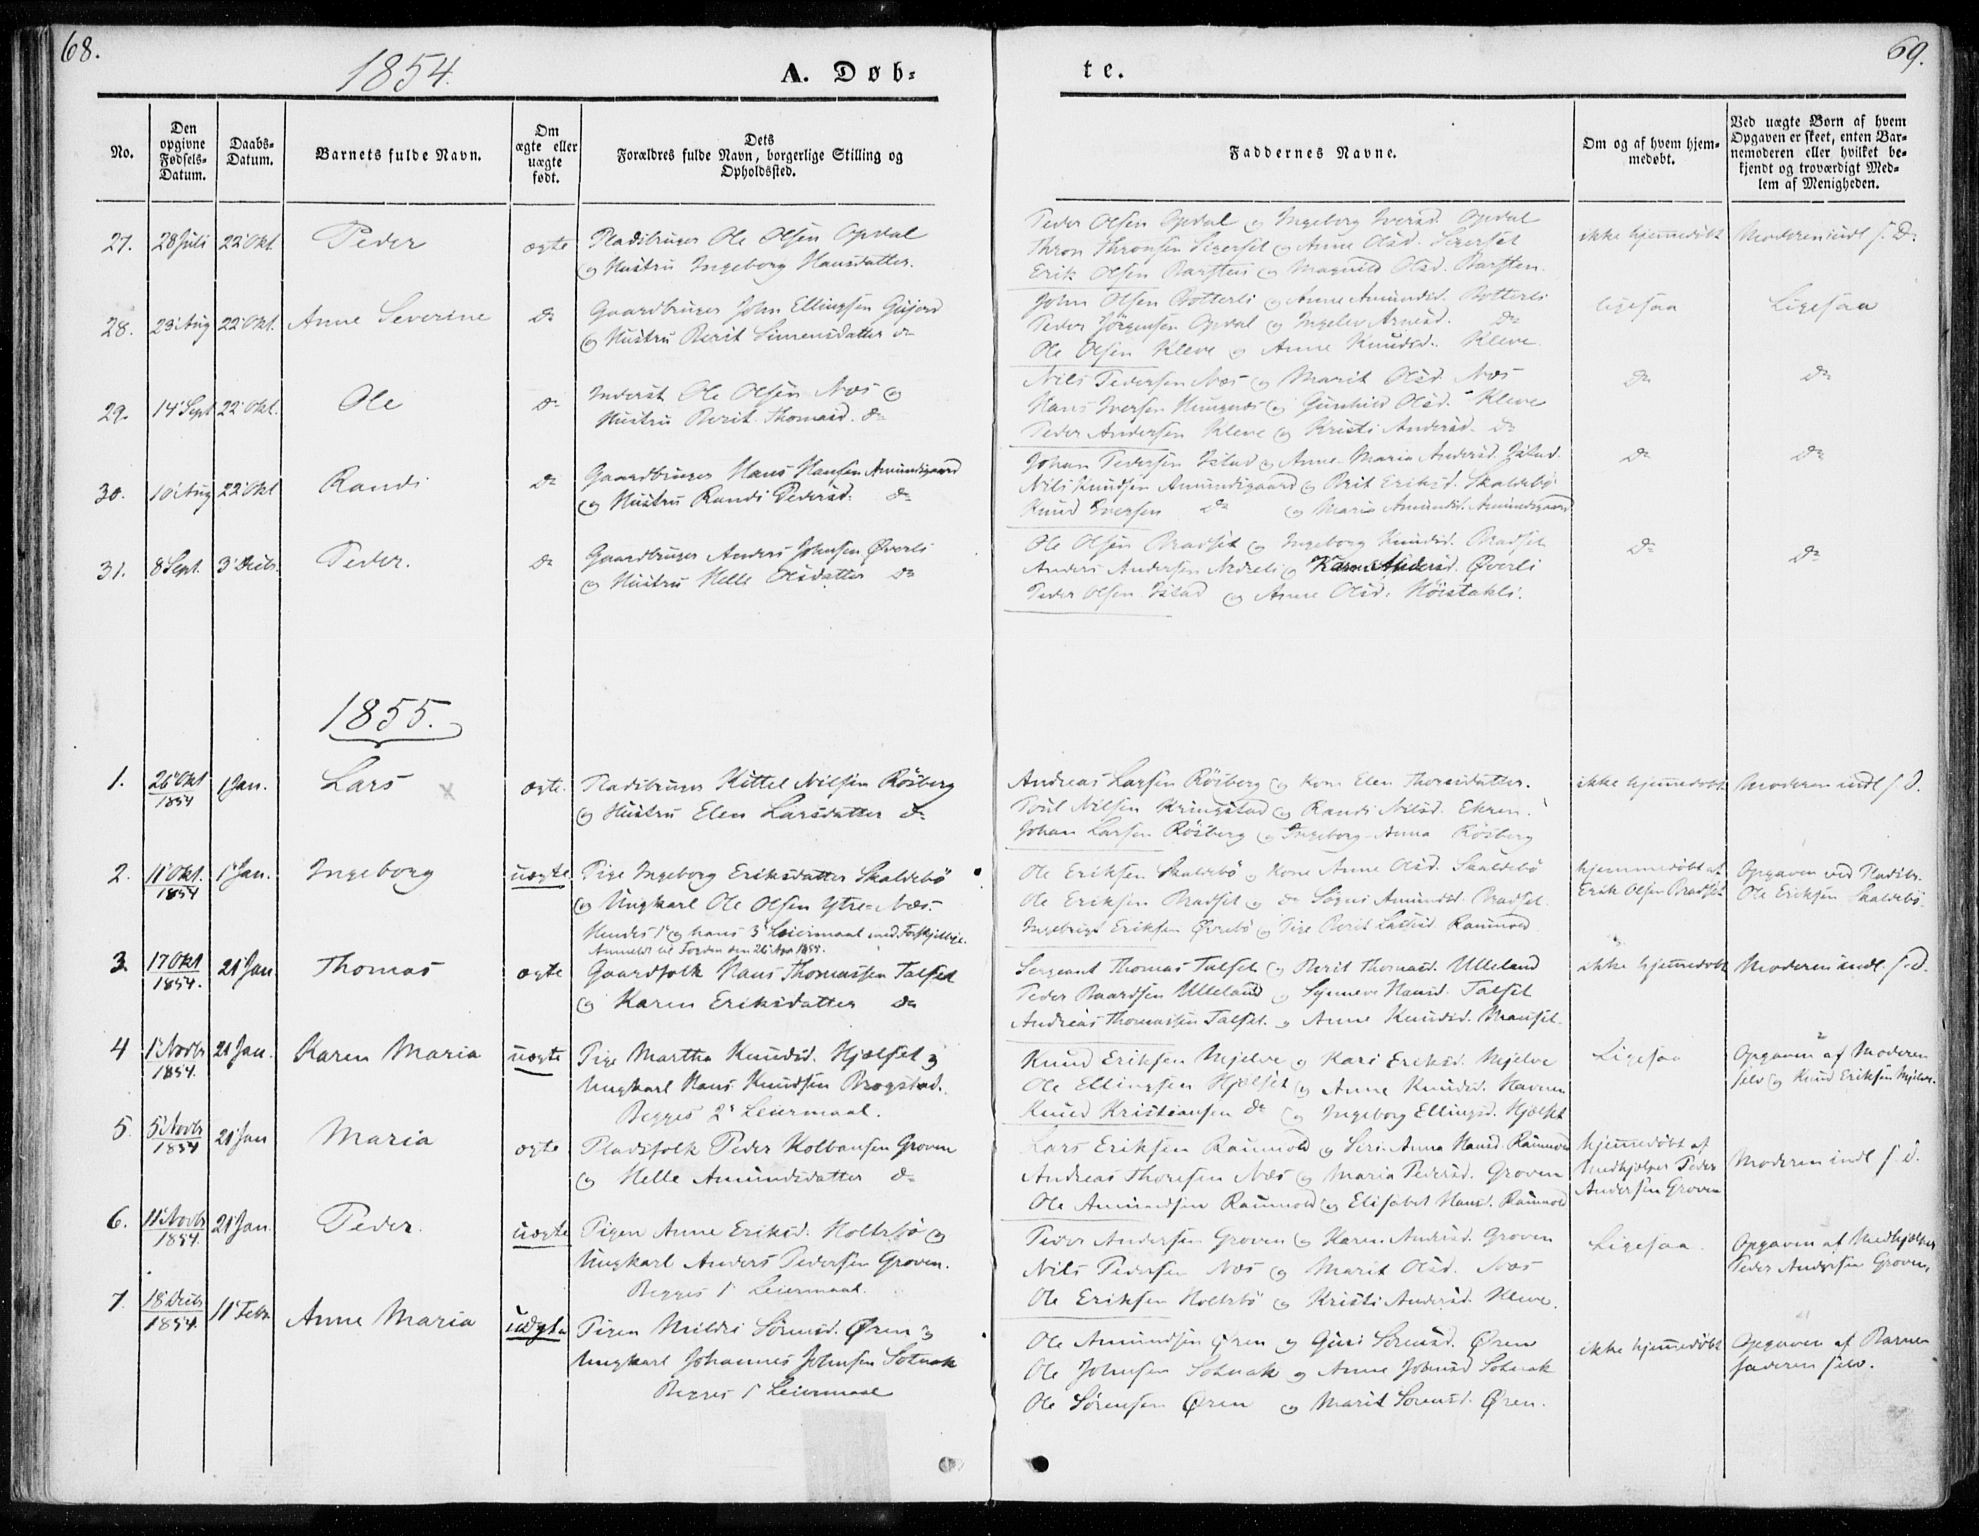 68.
1854.
A. Døb-
te.
69.
No.
Den opgivne Fødsels-Datum.
Daabs-Datum.
Barnets fulde Navn.
Om ægte eller uægte født.
Dets Forældres fulde Navn, borgerlige Stilling og Opholdssted.
Faddernes Navne.
Om og af hvem hjemmedøbt.
Ved uægte Børn af hvem Opgaven er skeet, enten Barnemoderen eller hvilket bekjendt og troværdigt Medlem af Menigheden.
27. 28 Juli 22 Okt. Peder ægte Pladsbruger Ole Olsen Opdal
og Hustru Ingeborg Hansdatter.
Peder Olsen Opdal og Ingeborg Iversd. Opdal
Thron Thronsen og Anne Olsd.
Erik Olsen Barsten og Magnild Olsd. Barsten.
ikke hjemmedøbt Moderen indl. s. D.
28. 23 Aug 22 Okt. Anne Severine do Gaardbruger John Ellingsen
og Hustru Berit Simensdatter do
John Olsen Botterli og Anne Amundsd. Botterli
Peder Jörgensen Opdal og Ingelev Arnesd. do
Ole Olsen Kleve og Anne Knudsd. Kleve.
ligesaa Ligesaa
29. 14 Sept 22 Okt. Ole do Inderst Ole Olsen Næs og
Hustru Berit Thomasd. do
Nils Pedersen Næs og Marit Olsd. Næs
Hans Iversen og Gunhild Olsd. Kleve
Peder Andersen Kleve og Kristi Andersd. do
do do
30. 10 Aug 22 Okt Randi do Gaardbruger Hans Hansen Amundsgaard
og Hustru Randi Pedersd. do
Johan Pedersen Istad og Anne Maria Andersd. Istad.
Nils Knudsen Amundsgaard og Brit Eriksd. Skaldebö
Knud Iversen do og Marie Amundsd. Amundsgaard
do do
31. 8 Sept. 3 Decbr. Peder. do Gaardbruger Anders Johnsen Øverli
og Hustru Helle Olsdatter do
Ole Olsen Bradset og Ingeborg Knudsd. Bradset
Anders Andersen Nedreli og Karen Andersd. Øverli
Peder Olsen Istad og Anne Olsd.
do do
1855.
1. 26 Okt 1854 1 Jan. Lars ægte. Pladsbruger Kittel Nilsen Rösberg
og Hustru Elen Larsdatter do
Andreas Larsen Rösberg og Kone Elen Thoresdatter.
Nilsen Kringstad og Randi Nilsd. Ekren.
Johan Larsen Rösberg og Ingeborg Anna Rösberg
ikke hjemmedøbt Moderen indl s. D.
2. 11 Okt. 1854 1 Jan. Ingeborg uægte Pige Ingeborg Eriksdatter Skaldebö
og Ungkarl Ole Olsen Ytre-Næs.
Hendes 1 og hans 3 Leiermaal med
Anmeldt til Fogden den 26 Apr 1855.
Ole Eriksen Skaldebö og Kone Anne Olsd. Skaldebö
Ole Eriksen Bradset og do Amundsd. Bradset.
Ingebrigt Eriksen Øvrebö og Pige Berit Larsd. Raumod
hjemmedøbt af Erik Olsen Bradset
Opgaven ved Pladsbr. Ole Eriksen Skaldebö.
3. 17 Okt 1854. 21 Jan Thomas ægte Gaardfolk Hans Thomassen Talset
og Karen Eriksdatter do
Sergeant Thomas Talset og Berit Thomasd. Ulleland
Peder Baardsen Ulleland og Synneve Hansd. Talset
Andreas Thomassen Talset. og Anne Knudsd.
ikke hjemmedøbt Moderen indl. s. D.
4 1 Novbr 1854. 21 Jan. Karen Maria uægte Pige Martha Knudsd. Hjelset og
Ungkarl Hans Knudsen Brogstad.
Begges 2 Leiermaal.
Knud Eriksen Mjelve og Kari Eriksd. Mjelve
Ole Ellingsen Hjelset og Anne Knudsd. Havnen
Knud Kristiansen do og Ingeborg Ellingsd. Hjelset
Ligesaa Opgaven af Moderen selv og Knud Eriksen Mjelve.
5. 5 Novbr 1854 21 Jan Maria ægte Pladsfolk Peder Kolbansen Groven
og Helle Amundsdatter do
Lars Eriksen Raumod og Seri Anna Hansd. Raumod
Andreas Thoresen Næs og Maria Pedersd. Groven
Ole Amundsen Raumod og Elisabet Hansd. Raumod
hjemmedøbt af Medhjelper Peder Andersen Groven
Moderen indl s. d.
6. 11 Novbr 1854. 21 Jan. Peder. uægte Pigen Anne Eriksd. Holtebö og
Ungkarl Anders Pedersen Groven.
Begges 1 Leiermaal.
Peder Andersen Groven og Karen Andersd. Groven
Nils Pedersen Næs og Marit Olsd. Næs
Ole Eriksen Holtebö og Kristi Andersd. Kleve.
Ligesaa. Opgaven af Medhjelper Peder Andersen Groven.
7. 18 Decbr 1854. 11 Febr. Anne Maria uægte Pigen Mildri Sörensd. Øren og
Ungkarl Johannes Johnsen Sotnak
Begges 1 Leiermaal
Ole Amundsen Øren og Guri Sörensd. Øren
Ole Johnsen Sotnak og Anne Johnsd Sotnak
Ole Sörensen Øren og Marit Sörensd. Øren.
ikke hjemmedøbt Opgaven af Barnefaderen selv.